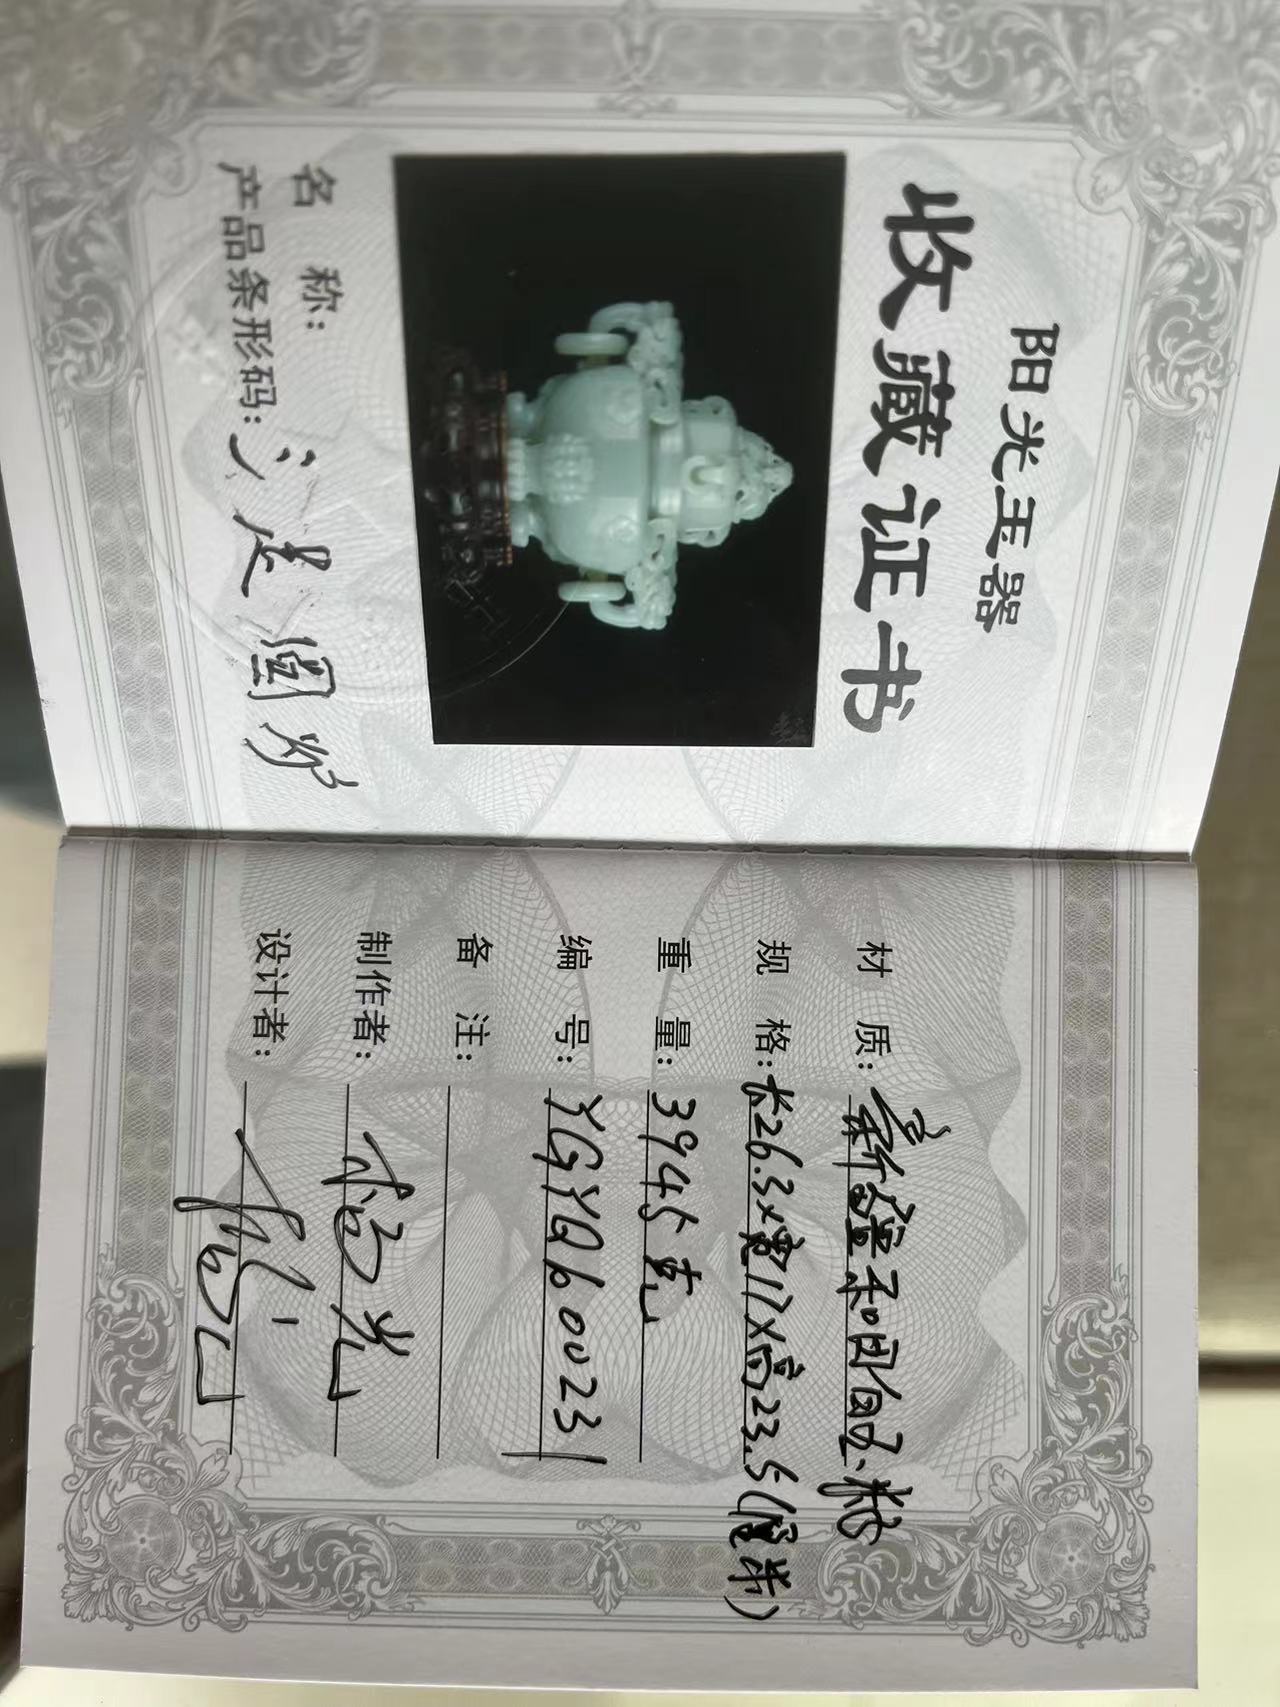 阳光玉器
收藏证书
名 称:
产品条形码:
三足圆炉
材 质: 新疆和田白玉.籽
规 格: 长26.3x宽17x高23.5(厘米)
重 量: 3945克
编 号: YGYQ600231
备 注:
制作者: 杨光
设计者: 杨光